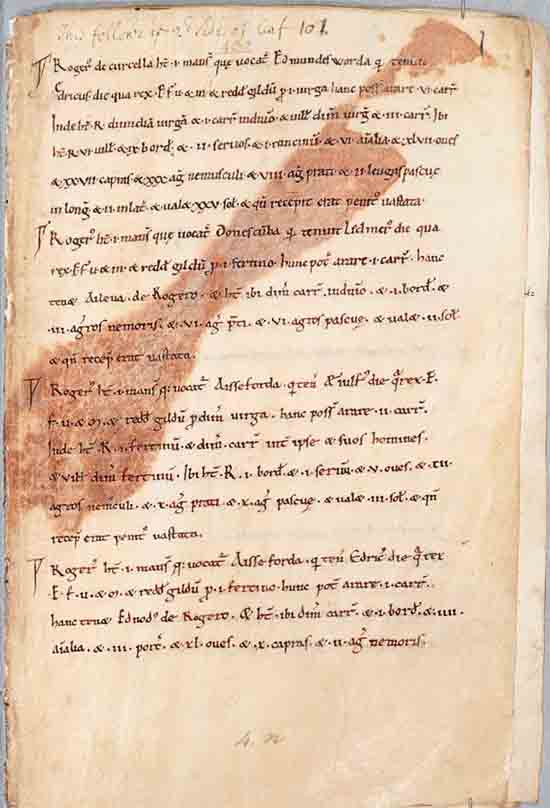 This follows yᵉ 2ᵈ side of Leaf 101.
Rogerꝰ de curcella ht̄ .i. mans̄ que vocat᷑ Edmundesworda q̄ tenuit
Edricus die qua rex .E.f.u.⁊.m. ⁊ redd̄ gildū p̄ .i. virga hanc poss̄ arare .vi. carr̄.
Inde ht̄ .R. dimidiā virgā ⁊ .i. carr̄ in dn̄io ⁊ uill̄ dim̄ virḡ ⁊ .iii. carr̄. Ibi
ht̄ .R. vi. uill̄ ⁊ .ix. bord̄. ⁊ .ii. seruos ⁊ .i. runcinū ⁊ .vi. aīalia ⁊ .xlvii. oues
⁊ xxvii. capras ⁊ xxx. aḡ nemusculi ⁊ viii. aḡ prati ⁊ .ii. leugas pascue
in longḡ ⁊ .ii. in lat̄. ⁊ ual& xxv. sol̄. ⁊ qn̄ recepit erat penitꝰ uastata.
Rogerꝰ ht̄ .i. mans̄ que uocat᷑ Donescūba q̄ tenuit Ledmerꝰ die qua
rex .E.f.u.⁊.m. ⁊ redd̄ gildū p̄ .i. fertino. hunc pot̄ arare .i. carr̄. hanc
ten& Aileua. de Rogero. ⁊ ht̄ ibi dim̄ carr̄. in dn̄io. ⁊ .i. bord̄. ⁊
.iii. agros nemoris. ⁊ .vi. aḡ p̄ti. ⁊ .vi. agros pascue. ⁊ ual& .ii. sol̄
⁊ qn̄ recep̄ erat uastata.
Rogerꝰ ht̄ .i. mans̄ q̄ uocat᷑ Aisseforda. q̄ ten̄ die q̄ rex .E.
f.u.⁊.m. ⁊ redd̄ gildū p̄ dim̄ virga. hanc poss̄ arare .ii. carr̄.
Inde ht̄ .R. .i. fertinū. ⁊ dim̄. carr̄ int̄ ipse ⁊ suos homines.
⁊ uill̄ dim̄ fertinū. Ibi ht̄ .R. .i. bord̄. ⁊ .i. seruū ⁊ .v. oues. ⁊ .xii.
agros nem̄culi. ⁊ .x. aḡ prati ⁊ .x. aḡ pascue. ⁊ ual& .iii. sol̄. ⁊ qn̄
recep̄ erat penitꝰ uastata.
Rogerꝰ ht̄ .i. mans̄ q̄ uocat᷑ Aisseforda. q̄ ten̄ Edricꝰ die q̄ rex
.E.f.u.⁊.m. ⁊ redd̄ gildū p̄ .i. fertino. hunc pot̄ arare .i. carr̄.
hanc ten& Ednodꝰ de Rogero. ⁊ ht̄ ibi dim̄ carr̄. ⁊ .i. bord̄. ⁊ .iiii.
aīalia. ⁊ .iii. porc̄. ⁊ xl. oues. ⁊ .x. capras. ⁊ .ii. aḡ nemoris.